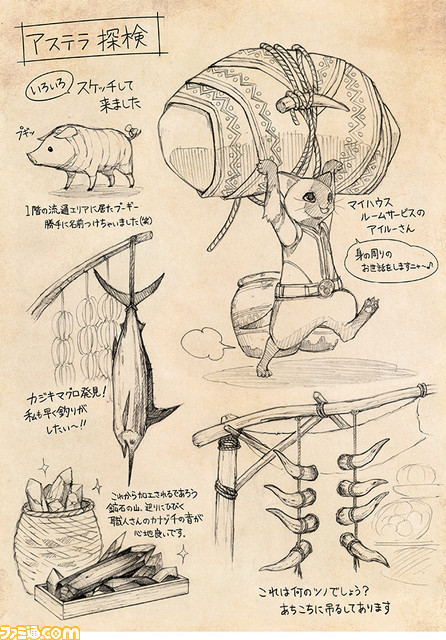 アステラ探検
いろいろ スケッチして
来ました
プギッ
1階の流通エリアに居たプーギー
勝手に名前つけちゃいました(笑)
マイハウス
ルームサービスの
アイルーさん
身の周りの
お世話をしますニャ〜♪
カジキマグロ発見!
私も早く釣りが
したい〜!!
これから加工されるであろう
鉱石の山。辺りにひびく
職人さんのカナヅチの音が
心地良いです。
これは何のツノでしょう?
あちこちに吊るしてあります
ファミ通.com